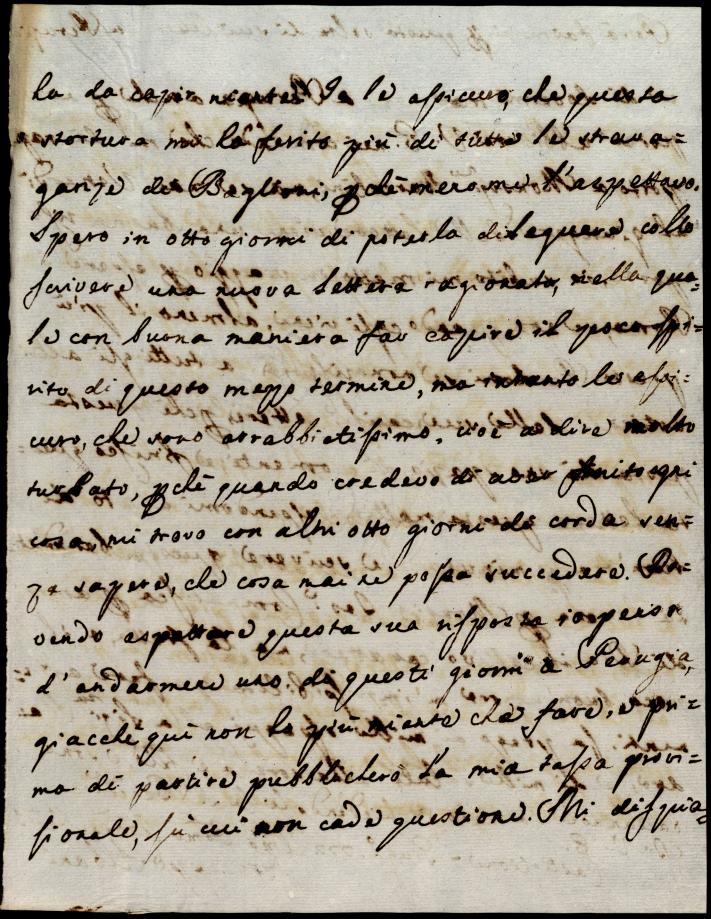 ha da capir niente. Io le assicuro, che questa
stortura mi hà ferito più di tutte le strava=
ganze di Baglioni, p chè meno me l'aspettavo.
Spero in otto giorni di poterla dileguare collo
scrivere una nuova lettera ragionata, nella qua=
le con buona maniera far capire il poco spi=
rito di questo mezzo termine, ma intanto le assi=
curo, che sono arrabbiatissimo, cioè a dire molto
turbato, p chè quando credevo di aver finito ogni
cosa, mi trovo con altri otto giorni di corda sen=
za sapere, che cosa mai ne possa succedere. Do=
vendo aspettare questa sua risposta io penso
d'andarmene uno di questi giorni a Perugia,
giacchè quì non hò più niente che fare, e pri=
ma di partire pubblicherò la mia tassa provi=
sionale, sù cui non cade questione. Mi dispia=